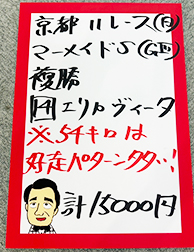 京都11レース(日)
マーメイドS(GⅢ)
複勝
14エリカヴィータ
※54キロは
好走パターンタタ…!
計15000円